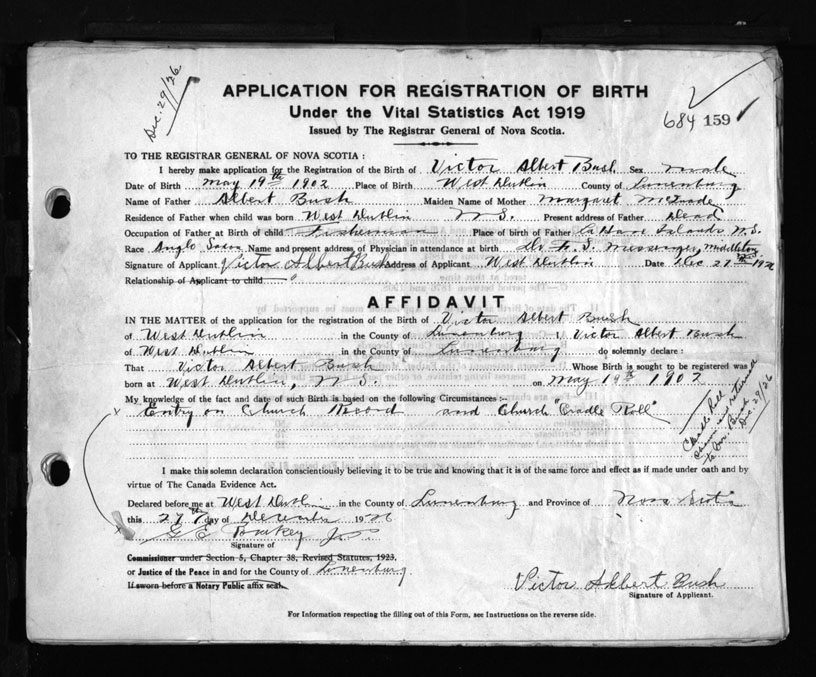 APPLICATION FOR REGISTRATION OF BIRTH
Under the Vital Statistics Act 1919
Issued by The Registrar General of Nova Scotia.
Dec. 29/26
684 159
TO THE REGISTRAR GENERAL OF NOVA SCOTIA :
I hereby make application for the Registration of the Birth of Victor Albert Bush Sex male
Date of Birth May 19th 1902 Place of Birth West Dublin County of Lunenburg
Name of Father Albert Bush Maiden Name of Mother Margaret
Residence of Father when child was born West Dublin N.S. Present address of Father Dead
Occupation of Father at Birth of child Fisherman Place of birth of Father LaHave Islands N.S.
Race Anglo Saxon Name and present address of Physician in attendance at birth Dr. F. S. Messenger, Middleton, N.S.
Signature of Applicant Victor Albert Bush Address of Applicant West Dublin Date Dec 27th 1926
Relationship of Applicant to child
AFFIDAVIT
IN THE MATTER of the application for the registration of the Birth of Victor Albert Bush
of West Dublin in the County of Lunenburg I, Victor Albert Bush
of West Dublin in the County of Lunenburg do solemnly declare :
That Victor Albert Bush Whose Birth is sought to be registered was
born at West Dublin, N.S. on May 19th 1902
My knowledge of the fact and date of such Birth is based on the following Circumstances :-
x Entry on Church Record and Church "Cradle Roll"
Cradle Roll
shown and returned
to Bush
Dec. 29/26
I make this solemn declaration conscientiously believing it to be true and knowing that it is of the same force and effect as if made under oath and by
virtue of The Canada Evidence Act.
Declared before me at West Dublin in the County of Lunenburg and Province of Nova Scotia
this 27th day of December 1926
x G E J.P.
Signature of
Commissioner under Section 5, Chapter 38, Revised Statutes, 1923.
or Justice of the Peace in and for the County of Lunenburg.
If sworn before a Notary Public affix seal.
Victor Albert Bush
Signature of Applicant.
For Information respecting the filling out of this Form, see Instructions on the reverse side.